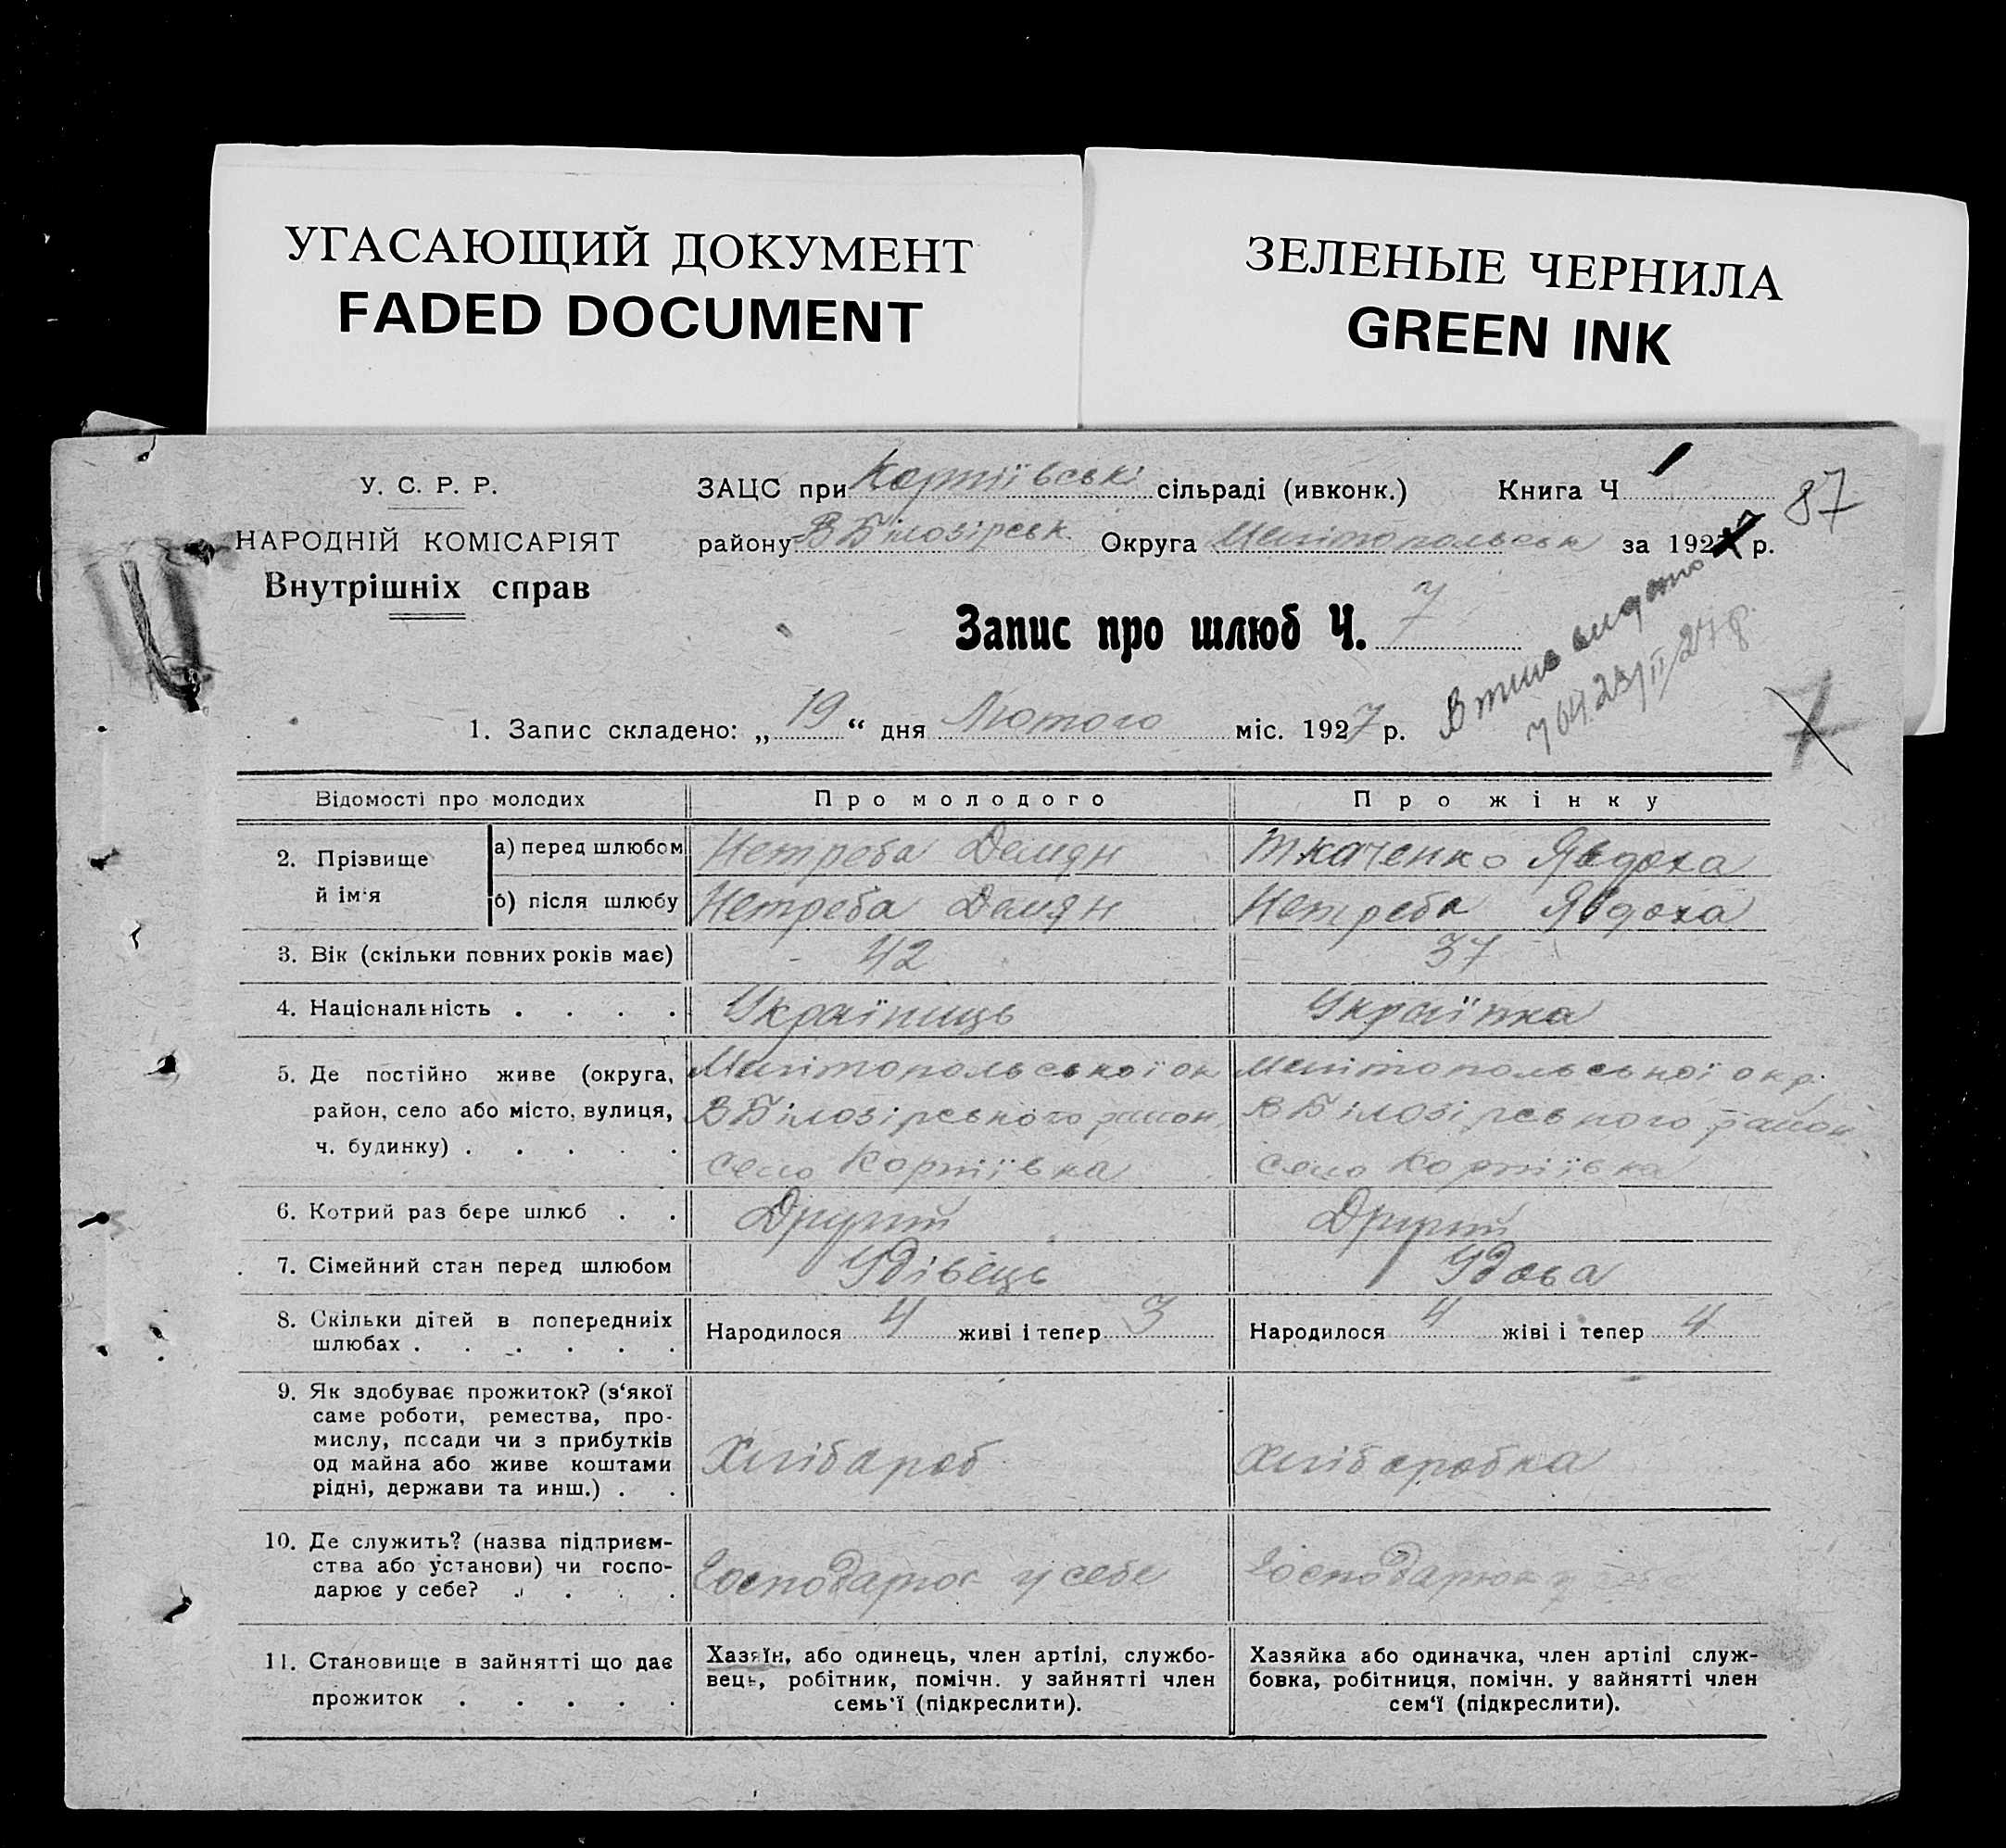 УГАСАЮЩИЙ ДОКУМЕНТ
FADED DOCUMENT
ЗЕЛЕНЫЕ ЧЕРНИЛА
GREEN INK
У. С. Р. Р.
НАРОДНІЙ КОМІСАРІЯТ
Внутрішніх справ
ЗАЦС при Корніївські сільраді (ивконк.) Книга Ч 1
87
району В Білозірськ. Округа Мелітопольськ за 1927 р.
Запис про шлюб Ч. 7
Втяг видано
7
1. Запис складено: „ 19 “ дня Лютого міс. 1927 р.
Відомості про молодих Про молодого Про жінку
2. Прізвище й ім'я
а) перед шлюбом Нетреба Демян Ткаченко Явдоха
б) після шлюбу Нетреба Демян Нетреба Явдоха
3. Вік (скільки повних років має) 42 37
4. Національність . . . . Українць Українка
5. Де постійно живе (округа, район, село або місто, вулиця, ч. будинку) . . . . .
Мелітопольської ок
В Білозірського район
село Корніївка
Мелітопольської окр.
В Білозірського район
село Корніївка
6. Котрий раз бере шлюб . . Другий Другий
7. Сімейний стан перед шлюбом Удівець Удова
8. Скільки дітей в попередніх
шлюбах . . . . . .
Народилося 4 живі і тепер 3
Народилося 4 жіві і тепер 4
9. Як здобуває прожиток? (з‘якої
саме роботи, ремества, про-
мислу, посади чи з прибутків
од майна або живе коштами
рідні, держави та инш.) . .
Хлібароб
Хлібаробка
10. Де служить? (назва підприєм-
ства або установи) чи госпо-
дарює у себе? . . . .
Господарює у себе
Господарює у
11. Становище в зайнятті що дає
прожиток . . . . .
Хазяїн, або одинець, член артілі, службо-
вець, робітник, помічн. у зайнятті член
семь‘ї (підкреслити).
Хазяйка або одиначка, член артілі служ-
бовка, робітниця, помічн. у зайнятті член
сем‘ї (підкреслити).